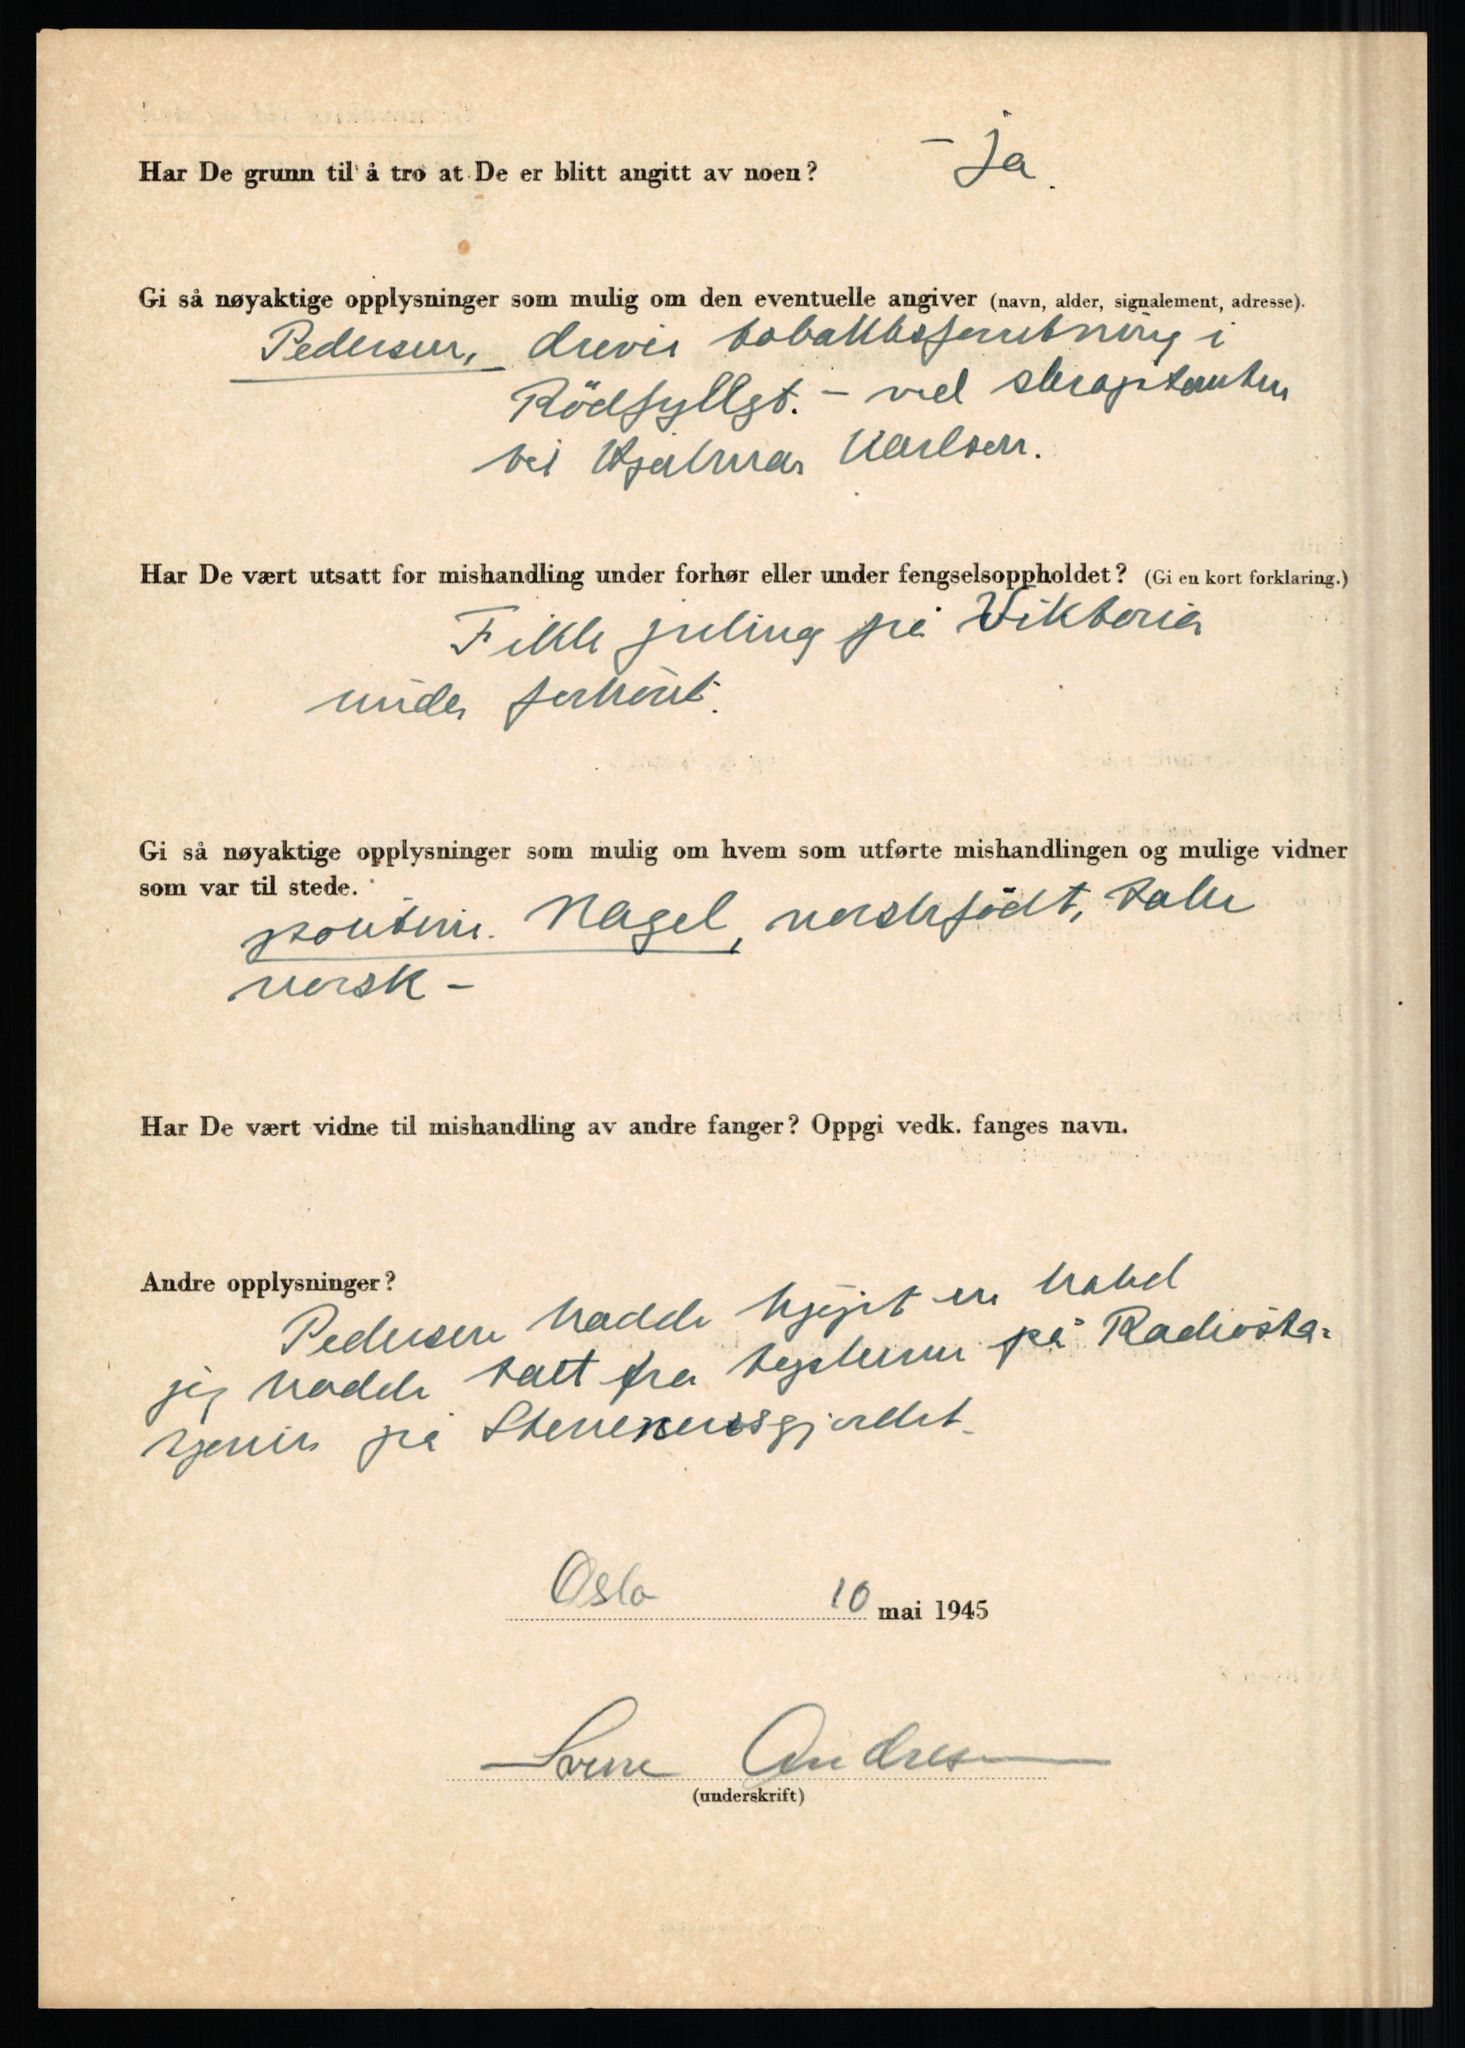 Har De grunn til å tro at De er blitt angitt av noen? – ja.
Gi så nøyaktige opplysninger som mulig om den eventuelle angiver (navn, alder, signalement, adresse).
Pedersen, drever tobakksforretning i
Rödfyllgt. – ved skraptomten
til Hjalmar Karlsen.
Har De vært utsatt for mishandling under forhør eller under fengselsoppholdet? (Gi en kort forklaring.)
Fikk juling på Viktoria
under forhöret.
Gi så nøyaktige opplysninger som mulig om hvem som utførte mishandlingen og mulige vidner
som var til stede.
Nagel, norskfödt, taler
norsk –
Har De vært vidne til mishandling av andre fanger? Oppgi vedk. fanges navn.
Andre opplysninger?
Pedersen hadde kjøpt en kabel
jeg hadde tatt fra tyskerne på Radiosta-
sjonen på Stenerersgjordet.
Oslo 10 mai 1945
Sverre Andresen
(underskrift)